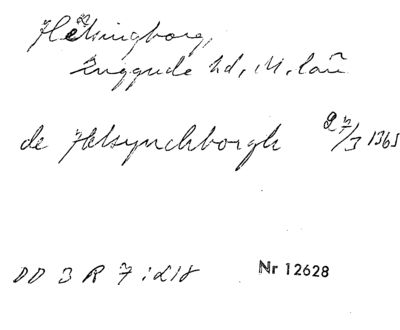 Helsingborg,
Luggude hd, M. län
de Helsynchborgh 27/3 1365
DD 3 R 7 : 218
Nr 12628